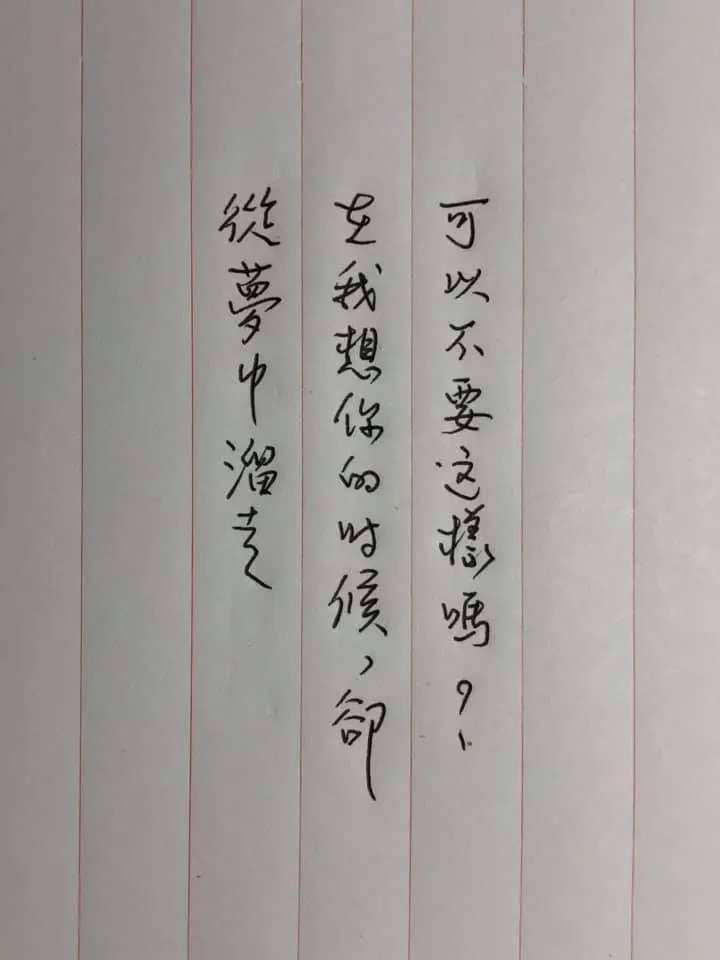 可以不要这樣嗎？
在我想你的时候，卻
從夢中溜走